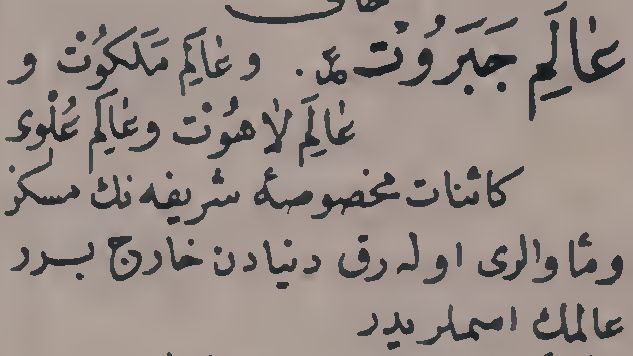 عَالَمِ جَبَرُوتْ . وعَالَمِ مَلَكُوتْ و
عَالَمِ لاهُوتْ وعَالَمِ عُلْوى
كائنات مخصوصهٔ شريفه نك مسكن
ومأوالرى اوله رق دنيادن خارج برر
عالمك اسملريدر